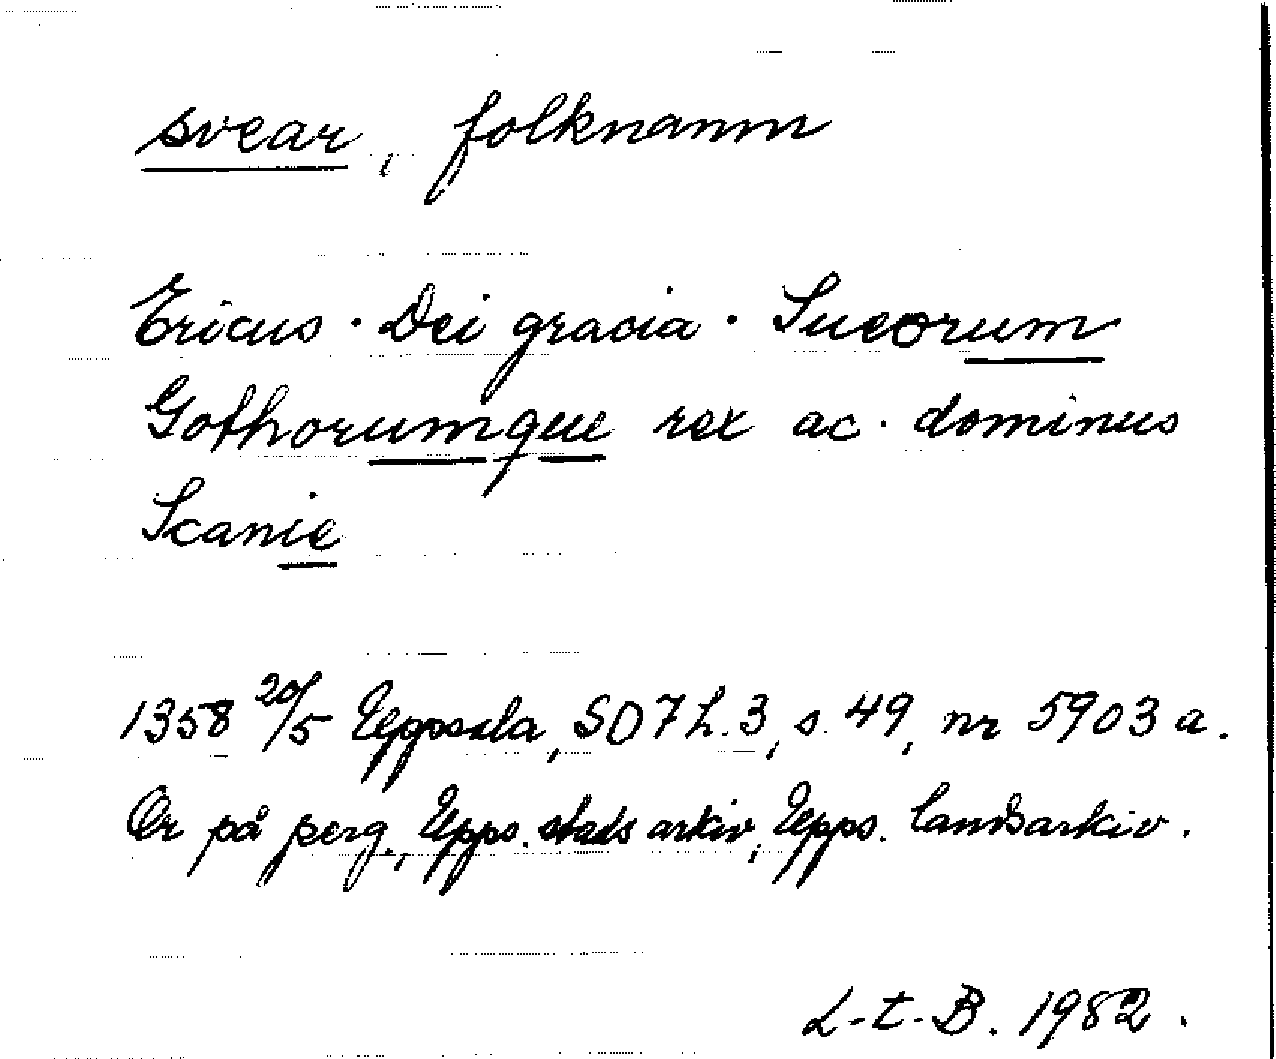 svear, folknamn
Ericus · Dei gracia · Sueorum
Gothorumque rex ac · dominus
Scanie
1358 20/5 Uppsala, SD7 h.3, s. 49, nr 5903 a.
Or på perg., Upps. stads arkiv, Upps. landsarkiv.
L-t-B. 1982.